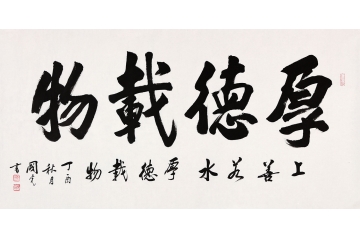 厚德載物
上善若水厚德載物
丁酉
秋月
國
書